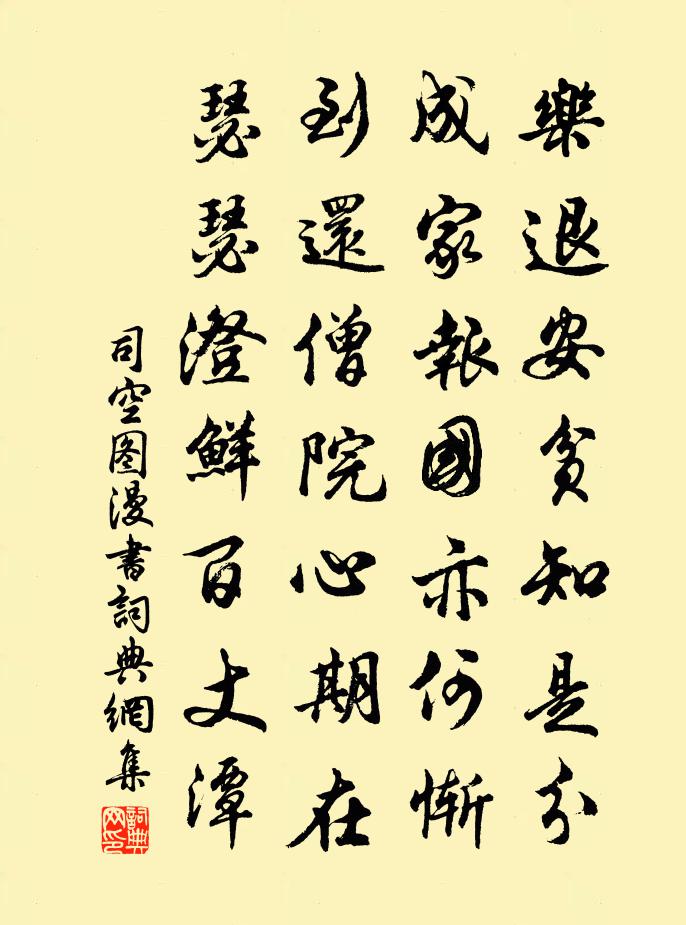 樂退安貧知是分
成家報國亦何慚
到還僧院心期在
瑟瑟澄鮮百丈潭
司空图漫書詞典網集
詞典
网印